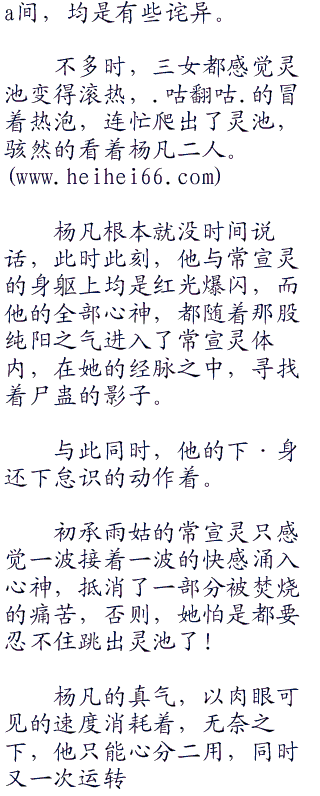 a间，均是有些诧异。
不多时，三女都感觉灵
池变得滚热，.咕翻咕.的冒
着热泡，连忙爬出了灵池，
骇然的看着杨凡二人。
(www.heihei66.com)
杨凡根本就没时间说
话，此时此刻，他与常宣灵
的身躯上均是红光爆闪，而
他的全部心神，都随着那股
纯阳之气进入了常宣灵体
内，在她的经脉之中，寻找
着尸蛊的影子。
与此同时，他的下·身
还下怠识的动作着。
初承雨姑的常宣灵只感
觉一波接着一波的快感涌入
心神，抵消了一部分被焚烧
的痛苦，否则，她怕是都要
忍不住跳出灵池了！
杨凡的真气，以肉眼可
见的速度消耗着，无奈之
下，他只能心分二用，同时
又一次运转